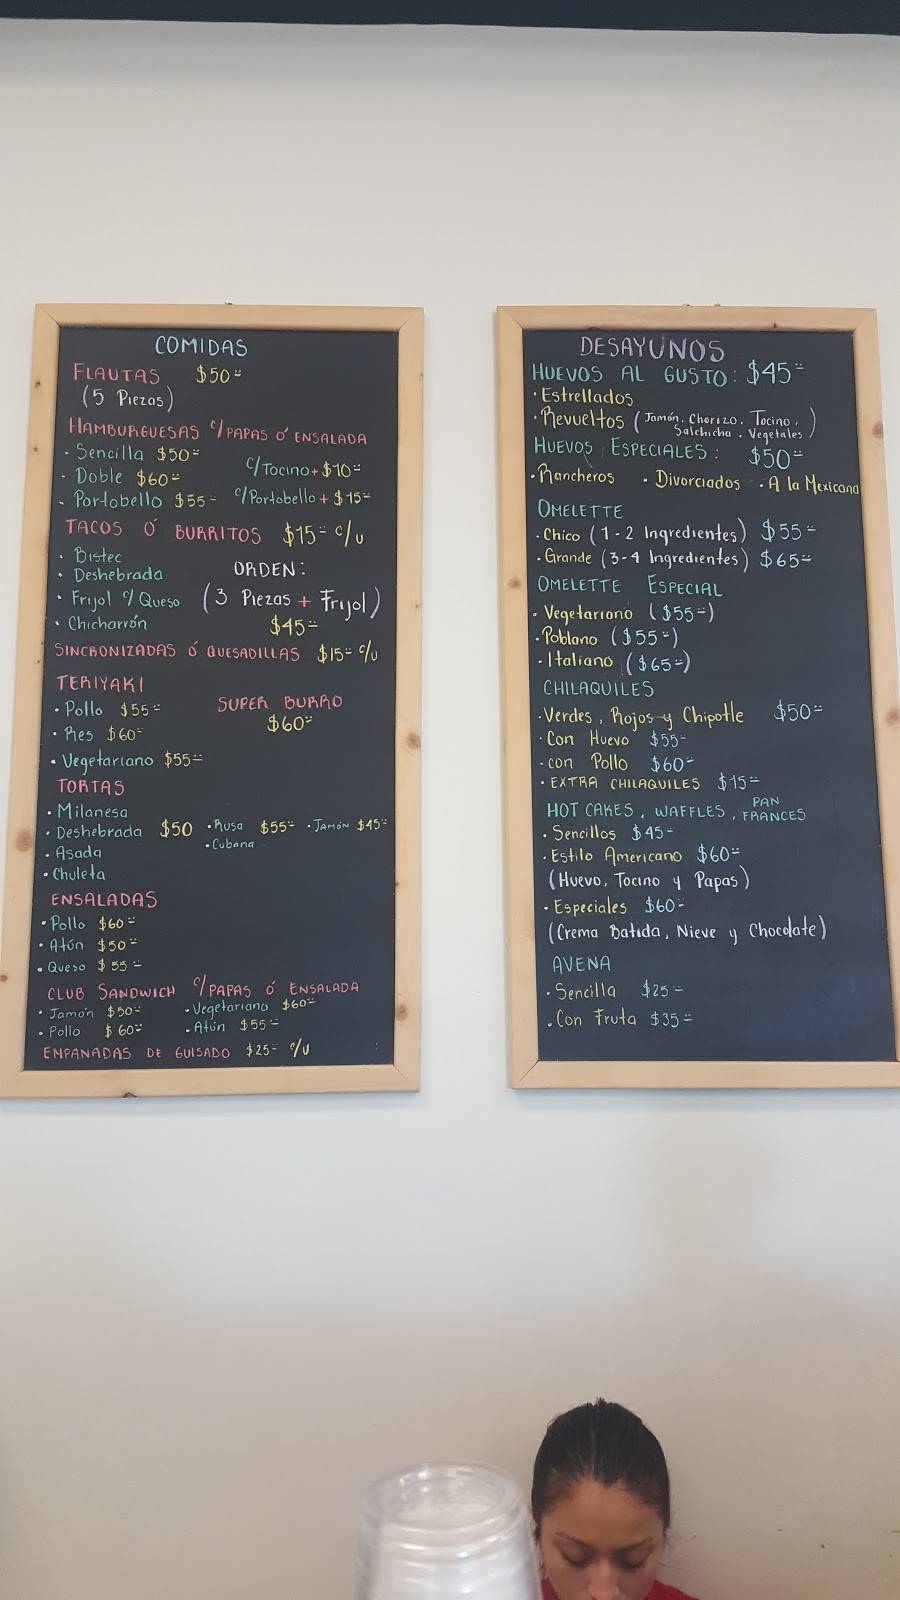 COMIDAS
FLAUTAS $50=
(5 Piezas)
HAMBURGUESAS c/PAPAS Ó ENSALADA
· Sencilla $50=
c/Tocino + $10=
· Doble $60=
· Portobello $55= c/Portobello + $15=
TACOS Ó BURRITOS $15= c/u
· Bistec
ORDEN:
· Deshebrada
· Frijol c/Queso (3 Piezas + Frijol)
· Chicharrón $45=
SINCRONIZADAS Ó QUESADILLAS $15= c/u
TERIYAKI
· Pollo $55= SUPER BURRO
· Res $60= $60=
· Vegetariano $55=
TORTAS
· Milanesa
· Deshebrada $50 · Rusa $55= · Jamón $45=
· Asada · Cubana
· Chuleta
ENSALADAS
· Pollo $60=
· Atún $50=
· Queso $55=
CLUB SANDWICH c/PAPAS Ó ENSALADA
· Jamón $50= · Vegetariano $60=
· Pollo $60= · Atún $55=
EMPANADAS DE GUISADO $25= c/u
DESAYUNOS
HUEVOS AL GUSTO: $45=
· Estrellados
· Revueltos (Jamón, Chorizo, Tocino,
Salchicha, Vegetales)
HUEVOS ESPECIALES: $50=
· Rancheros · Divorciados · A la Mexicana
OMELETTE
· Chico (1-2 Ingredientes) $55=
· Grande (3-4 Ingredientes) $65=
OMELETTE ESPECIAL
· Vegetariano ($55=)
· Poblano ($55=)
· Italiano ($65=)
CHILAQUILES
· Verdes, Rojos y Chipotle $50=
· Con Huevo $55=
· con Pollo $60=
· EXTRA CHILAQUILES $15=
HOT CAKES, WAFFLES, PAN FRANCES
· Sencillos $45=
· Estilo Americano $60=
(Huevo, Tocino y Papas)
· Especiales $60=
(Crema Batida, Nieve y Chocolate)
AVENA
· Sencilla $25=
· Con Fruta $35=